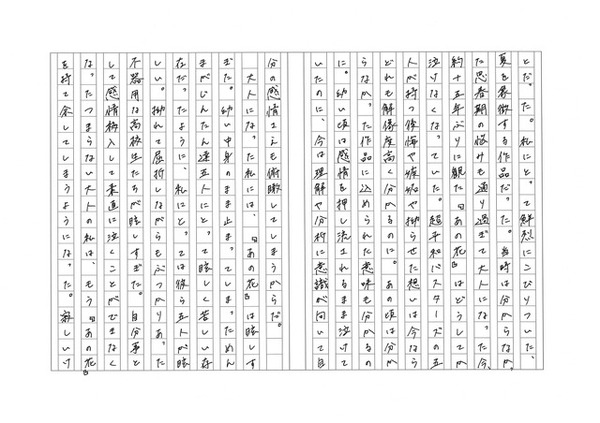 とだ。する。私にとって鮮烈にこびりついた、
夏を象徴する作品だった。当時は分からなか
った思春期の悩みも通り過ぎて大人になった今、
約十五年ぶりに観た『あの花』はどうしてか
泣けなくなっていた。超平和バスターズの五
人が持つ後悔や嫉妬や拗らせた想いは今が
どれも解像度高く分かるのに。あの頃は分か
らなかった作品に込められた意味も分かるの
に。幼い頃は感情を押し流されるまま泣けて
いたのに、今は理解や分析に意識が向いて自
分の感情さえも俯瞰してしまうからだ。
大人になった私には、『あの花』は眩しす
ぎた。幼い中身のまま止まってしまっためん
まがじんたん達五人にとって眩しく苦しい存
在だったように、私にとっては彼ら五人が眩
しい。拗れて屈折しながらもぶつかりあった
不器用な高校生たちが眩しすぎた。自分事と
して感情移入して素直に泣くことができなく
なった、つまらない大人の私は、もう『あの花』
を持て余してしまうようになった。寂しいけ